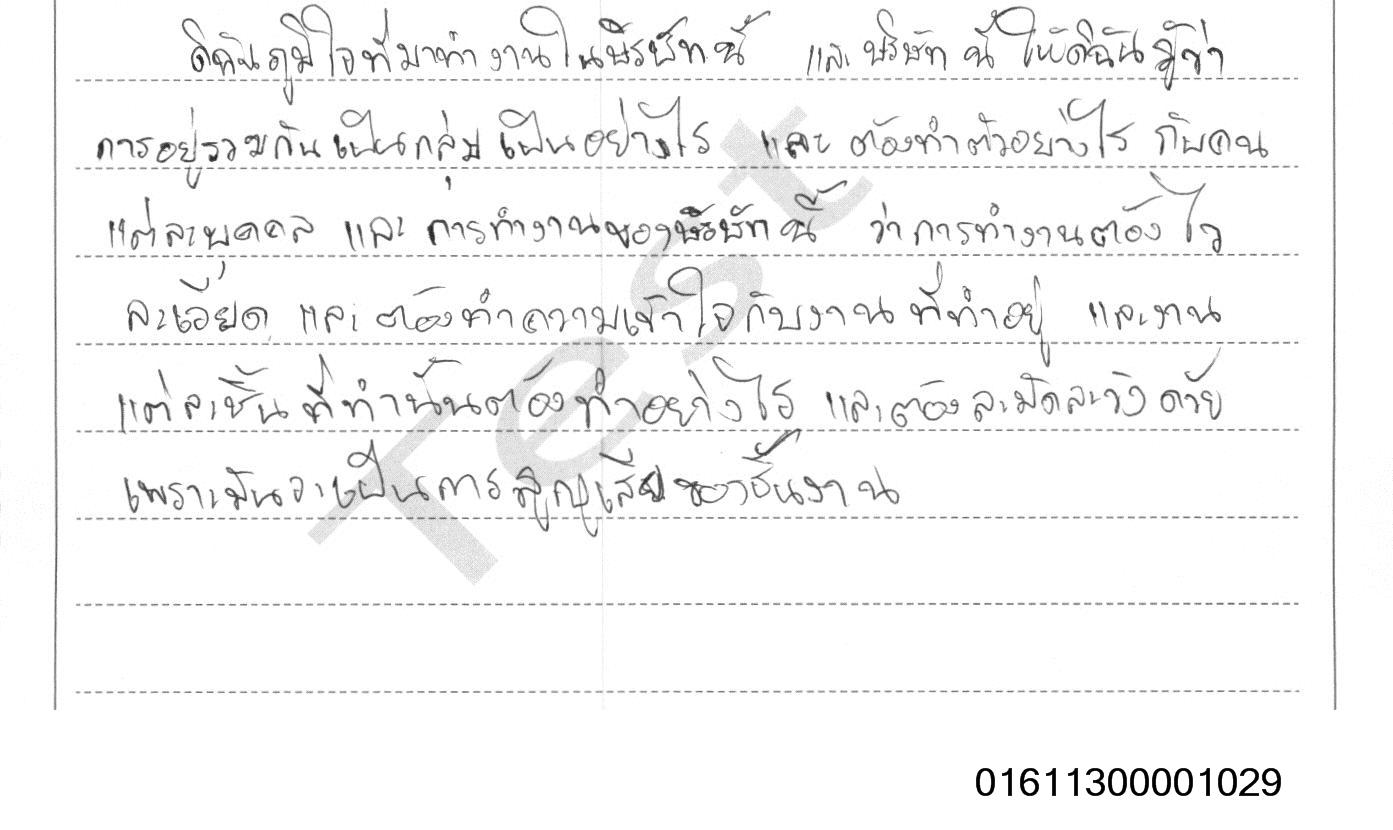 ดิฉันภูมิใจที่มาทำงานในบริษัทนี้ และบริษัทนี้ให้ดิฉันรู้ว่า
การอยู่รวมกันเป็นกลุ่มเป็นอย่างไร และต้องทำตัวอย่างไร กับคน
แต่ละบุคคล และการทำงานของบริษัทนี้ ว่าการทำงานต้องไว
ละเอียด และต้องทำความเข้าใจกับงานที่ทำอยู่ และงาน
แต่ละชิ้นที่ทำนั้นต้องทำอย่างไร และต้องละมัดละวังด้วย
เพราะมันจะเป็นการสูญเสียของชิ้นงาน
Test
01611300001029